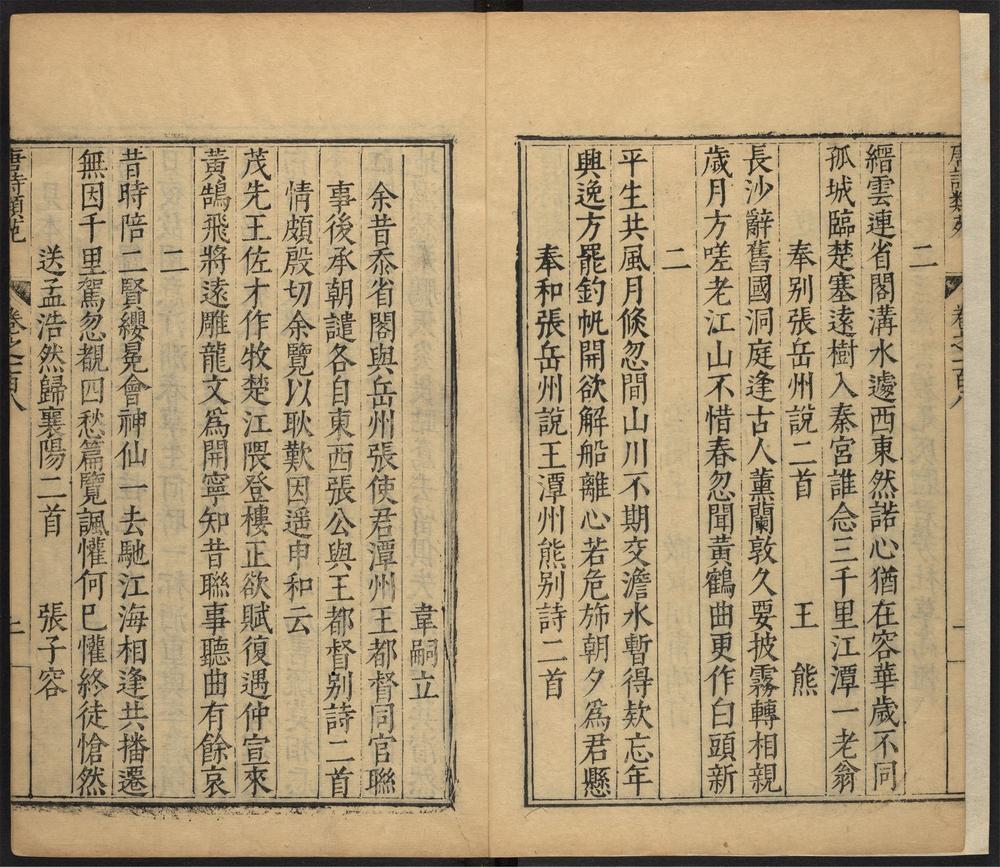 唐詩類苑 卷之一百八
二
縉雲連省閣溝水遽西東然諾心猶在容華歲不同
孤城臨楚塞遠樹入秦宮誰念三千里江潭一老翁
奉別張岳州說二首 王熊
長沙辭舊國洞庭逢古人薰蘭敦久要披霧轉相親
歲月方嗟老江山不惜春忽聞黃鶴曲更作白頭新
二
平生共風月倏忽間山川不期交澹水暫得款忘年
興逸方罷釣帆開欲解船離心若危斾朝夕為君懸
奉和張岳州說王潭州熊別詩二首
韋嗣立
余昔忝省閣與岳州張使君潭州王都督同官聯
事後承朝譴各自東西張公與王都督別詩二首
情頗殷切余覽以耿歎因遥申和云
茂先王佐才作牧楚江隈登樓正欲賦復遇仲宣來
黃鵠飛將遠雕龍文為開寧知昔聯事聽曲有餘哀
二
昔時陪二賢纓冕會神仙一去馳江海相逢共播遷
無因千里駕忽覩四愁篇覽諷懽何已懽終徒愴然
送孟浩然歸襄陽二首 張子容
唐詩類苑 卷之一百八